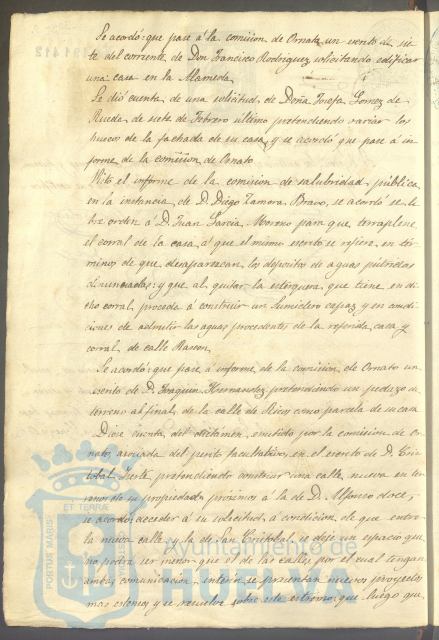 Se acordó: que pase á la comision de Ornato un escrito de sie-
te del corriente de Don Francisco Rodriguez solicitando edificar
una casa en la Alameda.
Se dió cuenta de una solicitud de Doña Josefa Gomez de
Rueda de siete de Febrero último pretendiendo variar los
huecos de la fachada de su casa, y se acordó que pase á in-
forme de la comision de Ornato.
Visto el informe de la comision de salubridad pública
en la instancia de D. Diego Zamora Bravo, se acordó se li-
bre orden á D. Juan Garcia Moreno para que terraplene
el corral de la casa á que el mismo escrito se refiere, en tér-
minos de que desaparezcan los depósitos de aguas pútridas
denunciadas: y que al quitar la estercuera que tiene en di-
cho corral, proceda á construir un Sumidero capaz y en condi-
ciones de admitir las aguas procedentes de la referida casa y
corral de calle Rascon.
Se acordó: que pase á informe de la comision de Ornato un
escrito de D. Joaquin Hernandez pretendiendo un pedazo de
terreno al final de la calle de Ricos como parcela de su casa
Diose cuenta del dictámen emitido por la comision de Or-
nato, asociada del perito facultativo, en el escrito de D. Cris-
tobal pretendiendo construir una calle nueva en ter-
renos de su propiedad, proximos á la de D. Alfonso doce,
se acordó acceder á su solicitud á condicion de que entre
la nueva calle y la de San Cristobal, se deje un espacio que
no podrá ser menor que el de las calles por el cual tengan
ambas comunicacion, interin se presentan nuevos proyectos
mas estensos y se resuelve sobre este estremo: que luego que
PORTUS MARIS
ET TERRAE
Ayuntamiento de
HUELVA